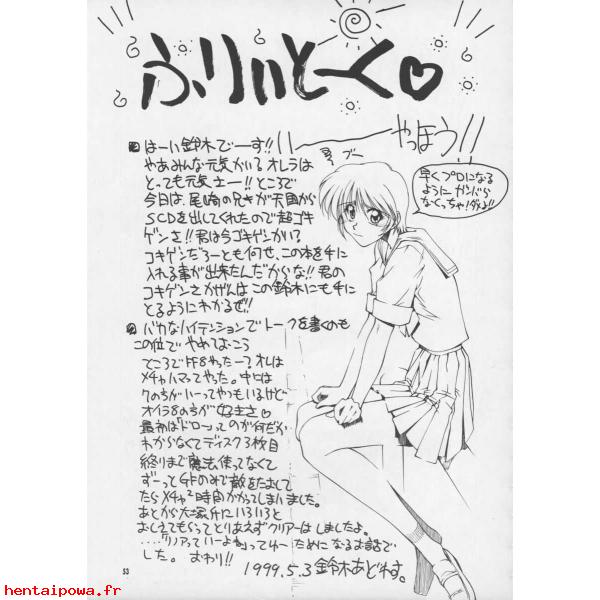 ふりぃとーく♡
はーい鈴木でーす!!
やっほう!!
やあみんな元気かい?オレラは
とっても元気さー!!ところで
今日は、尾崎の兄きが天国から
SCDを出してくれたので超ゴキ
ゲンさ!!君は今ゴキゲンかい?
ゴキゲンだろーとも何せ、この本を手に
入れる事が出来たんだからな!!君の
ゴキゲンさかげんはこの鈴木にも手に
とるようにわかるぜ!!
バカなハイテンションでトークを書くのも
この位でやめておこう
ところでFF8やったー?オレは
メチャハマってやった。中には
7のちがいーってやつもいるけど
オイラ8のちが好きさ♡
最初は「ドロー」ってのが何だか
わからなくてディスク3枚目
終りまで魔法使ってなくて
ずーっとGFのみで敵をたおして
たらメチャ2時間かかってしまいました。
あとから大塚氏にいろいろと
おしえてもらってとりあえずクリアーはしましたよ。
‥‥「リノアっていーよね」ってゆーためになるお話で
した。おわり!!
1999.5.3 鈴木あどれす。
早くプロになる
ようにガンバら
なくっちゃ!ダメよ!!
53
hentaipowa.fr